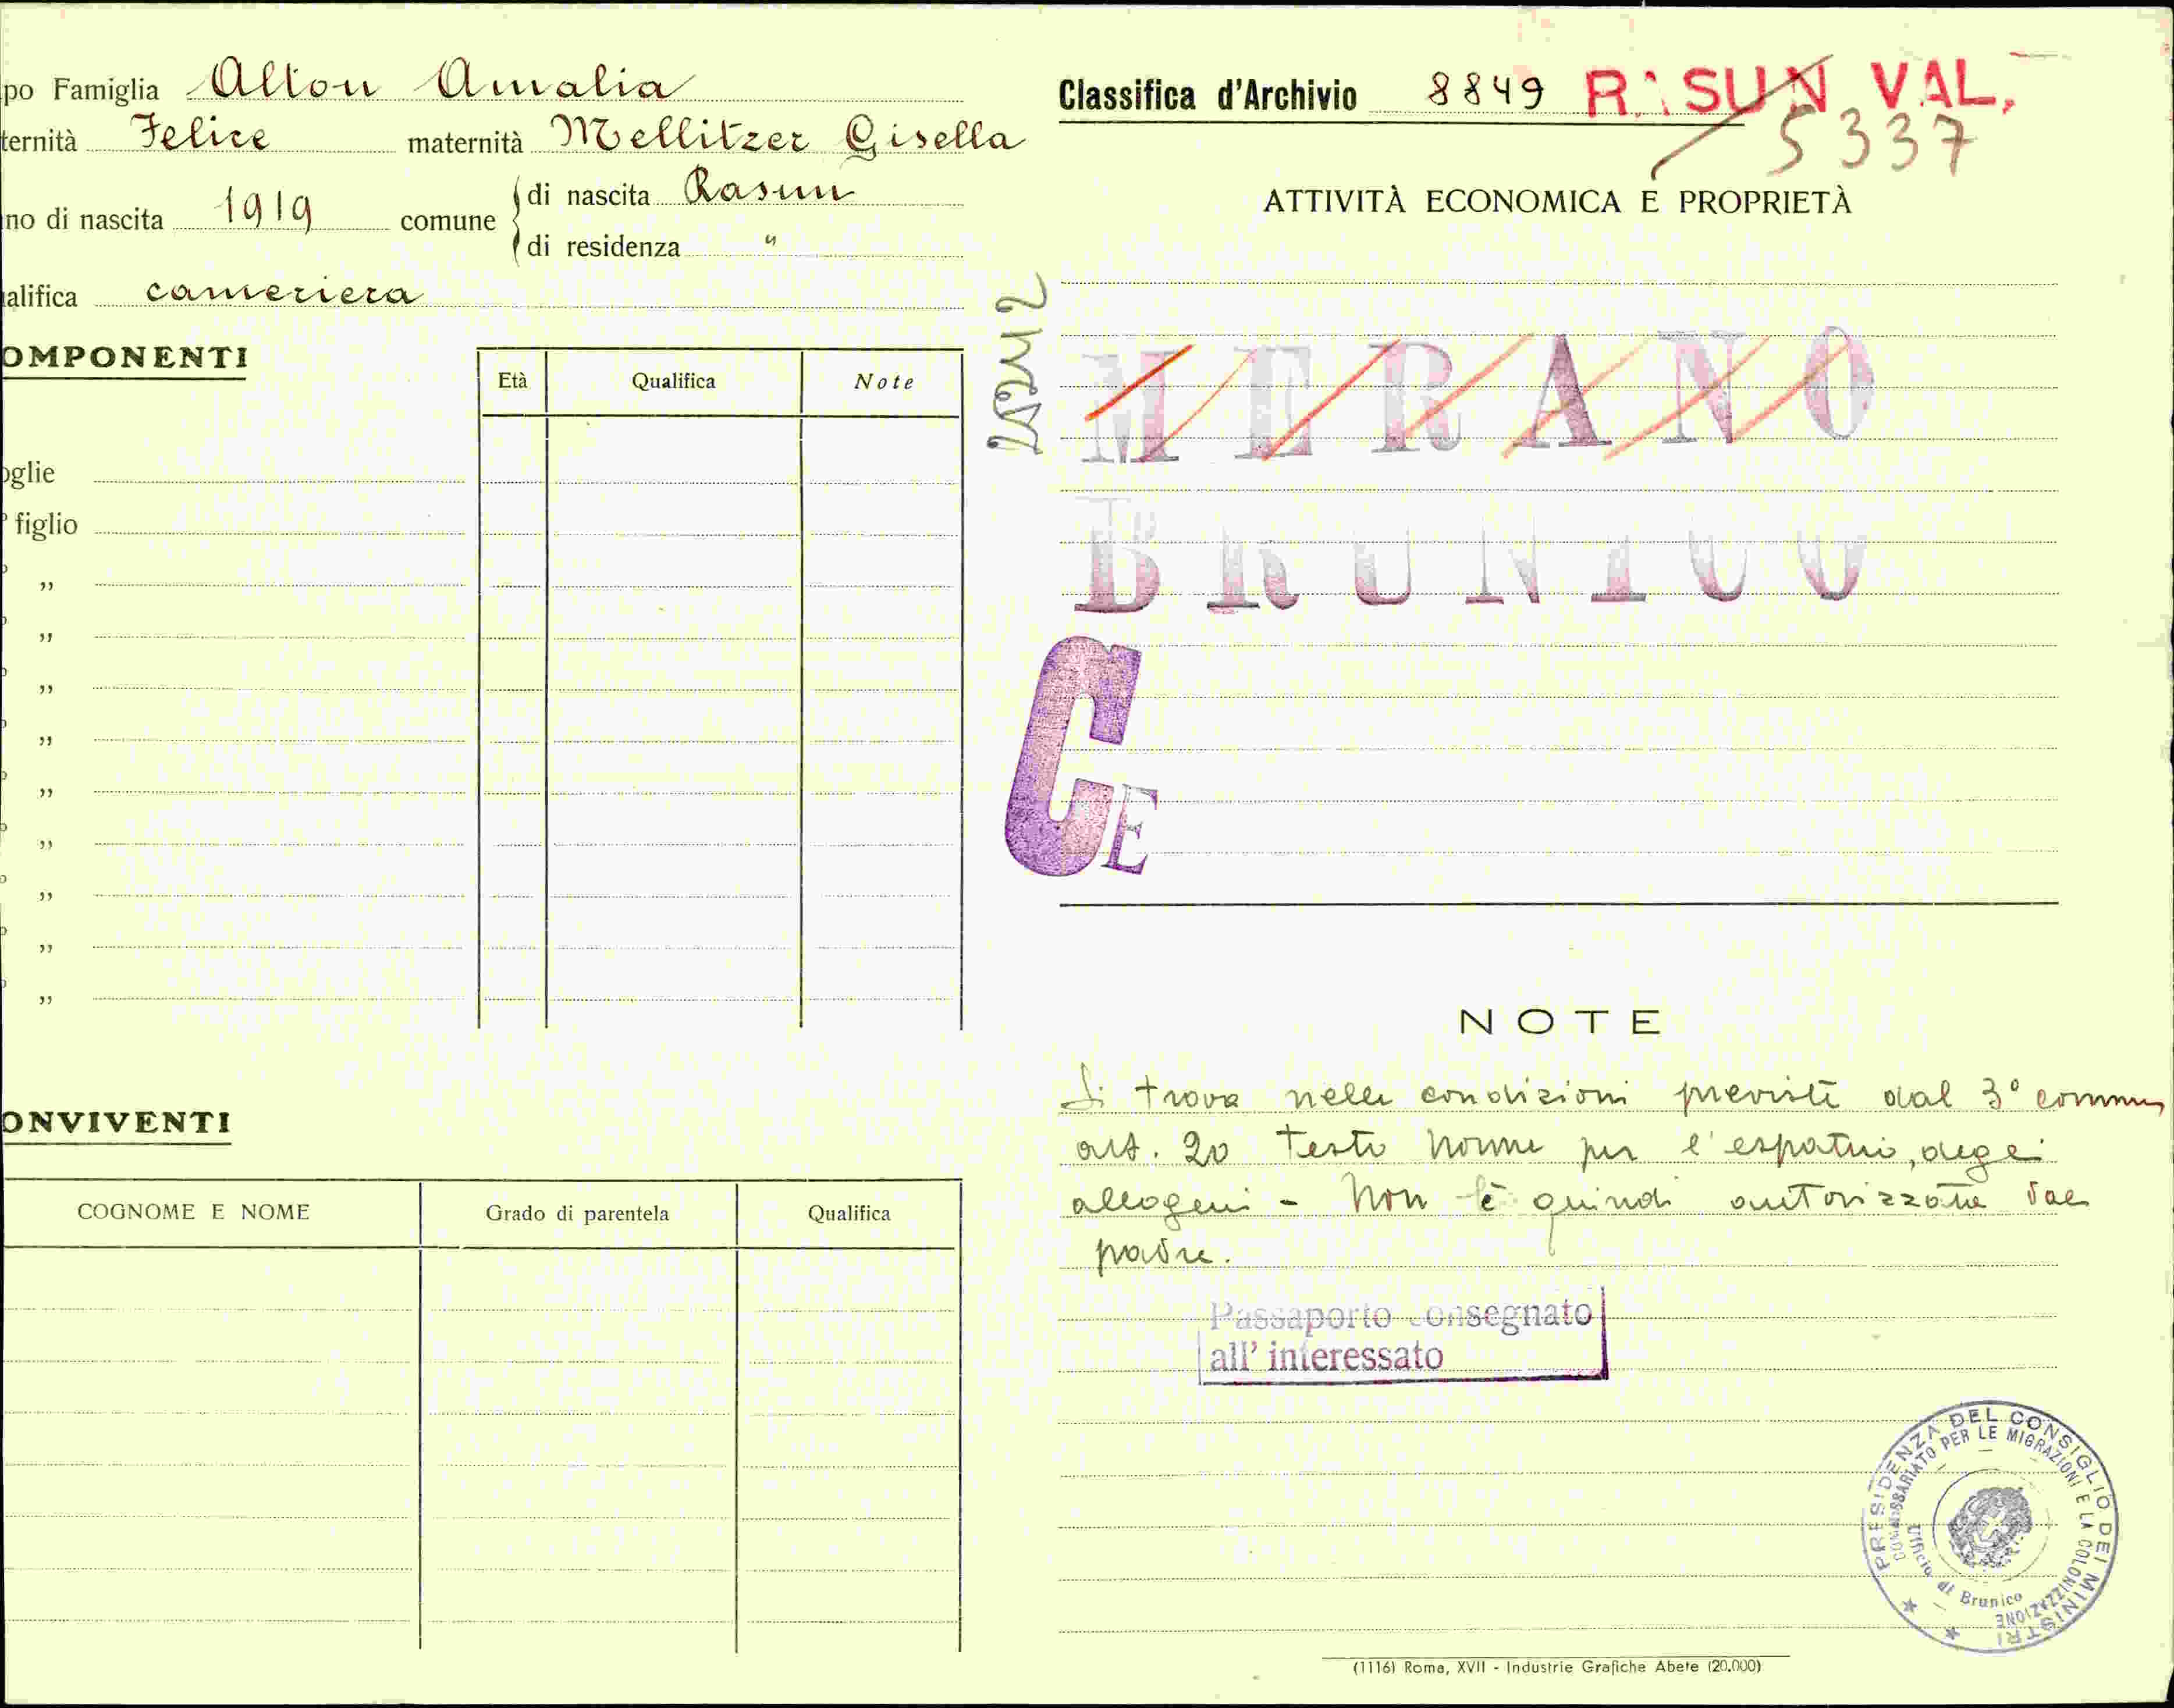 po Famiglia Alton Amalia
ternità Felice maternità Mellitzer Gisella
no di nascita 1919 comune di nascita Rasun
di residenza "
alifica cameriera
OMPONENTI
Età Qualifica Note
oglie
figlio
"
"
"
"
"
"
"
"
"
ONVIVENTI
COGNOME E NOME Grado di parentela Qualifica
Classifica d'Archivio 8849 RASUN VAL,
5337
ATTIVITÀ ECONOMICA E PROPRIETÀ
MERANO
BRUNICO
CE
NOTE
Si trova nelle condizioni previste dal 3° comma
art. 20 testo norme per l'espatrio, degli
allogeni - Non è quindi autorizzata dal
padre.
Passaporto consegnato
all' interessato
PRESIDENZA DEL CONSIGLIO DEI MINISTRI
COMMISSARIATO PER LE MIGRAZIONI E LA COLONIZZAZIONE
Ufficio di Brunico
(1116) Roma, XVII - Industrie Grafiche Abete (20.000)